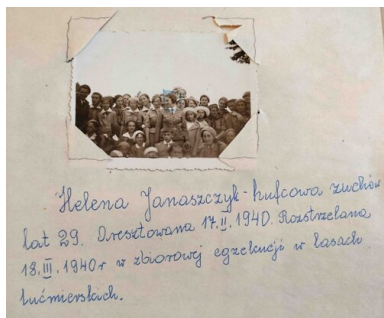 Helena Janaszczyk - hufcowa zuchów
lat 29. Aresztowana 17.II.1940. Rozstrzelana
18.III.1940r w zbiorowej egzekucji w lasach
lućmierskich.